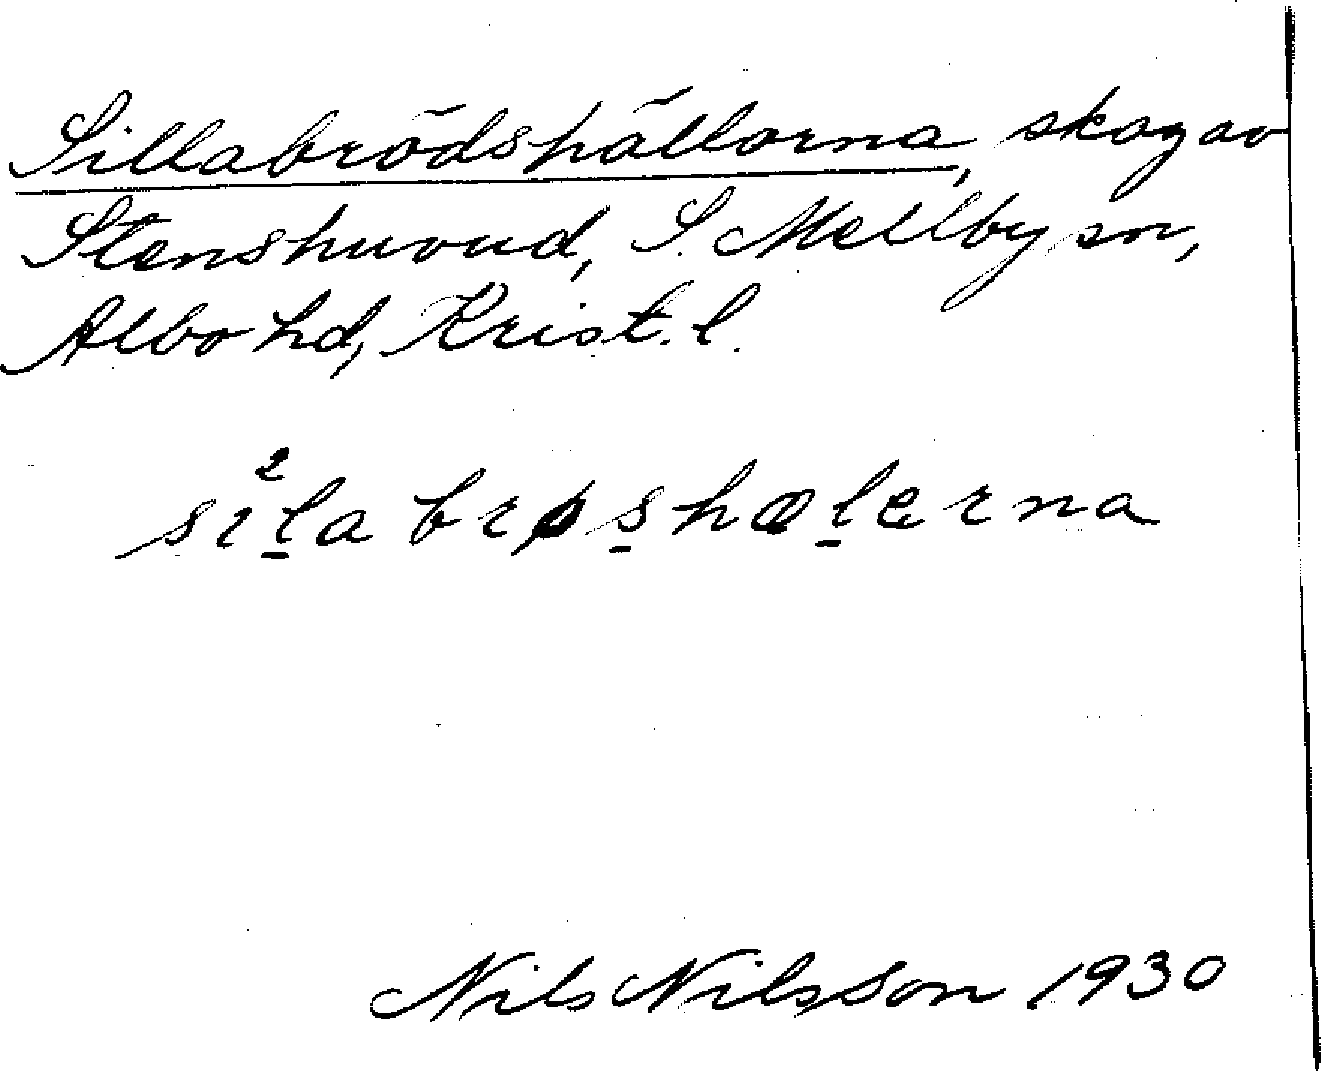 Sillabrödshällorna, skog av
Stenshuvud, S. Mellby sn,
Albo hd, Krist. l.
si²labrøshælerna
Nils Nilsson 1930